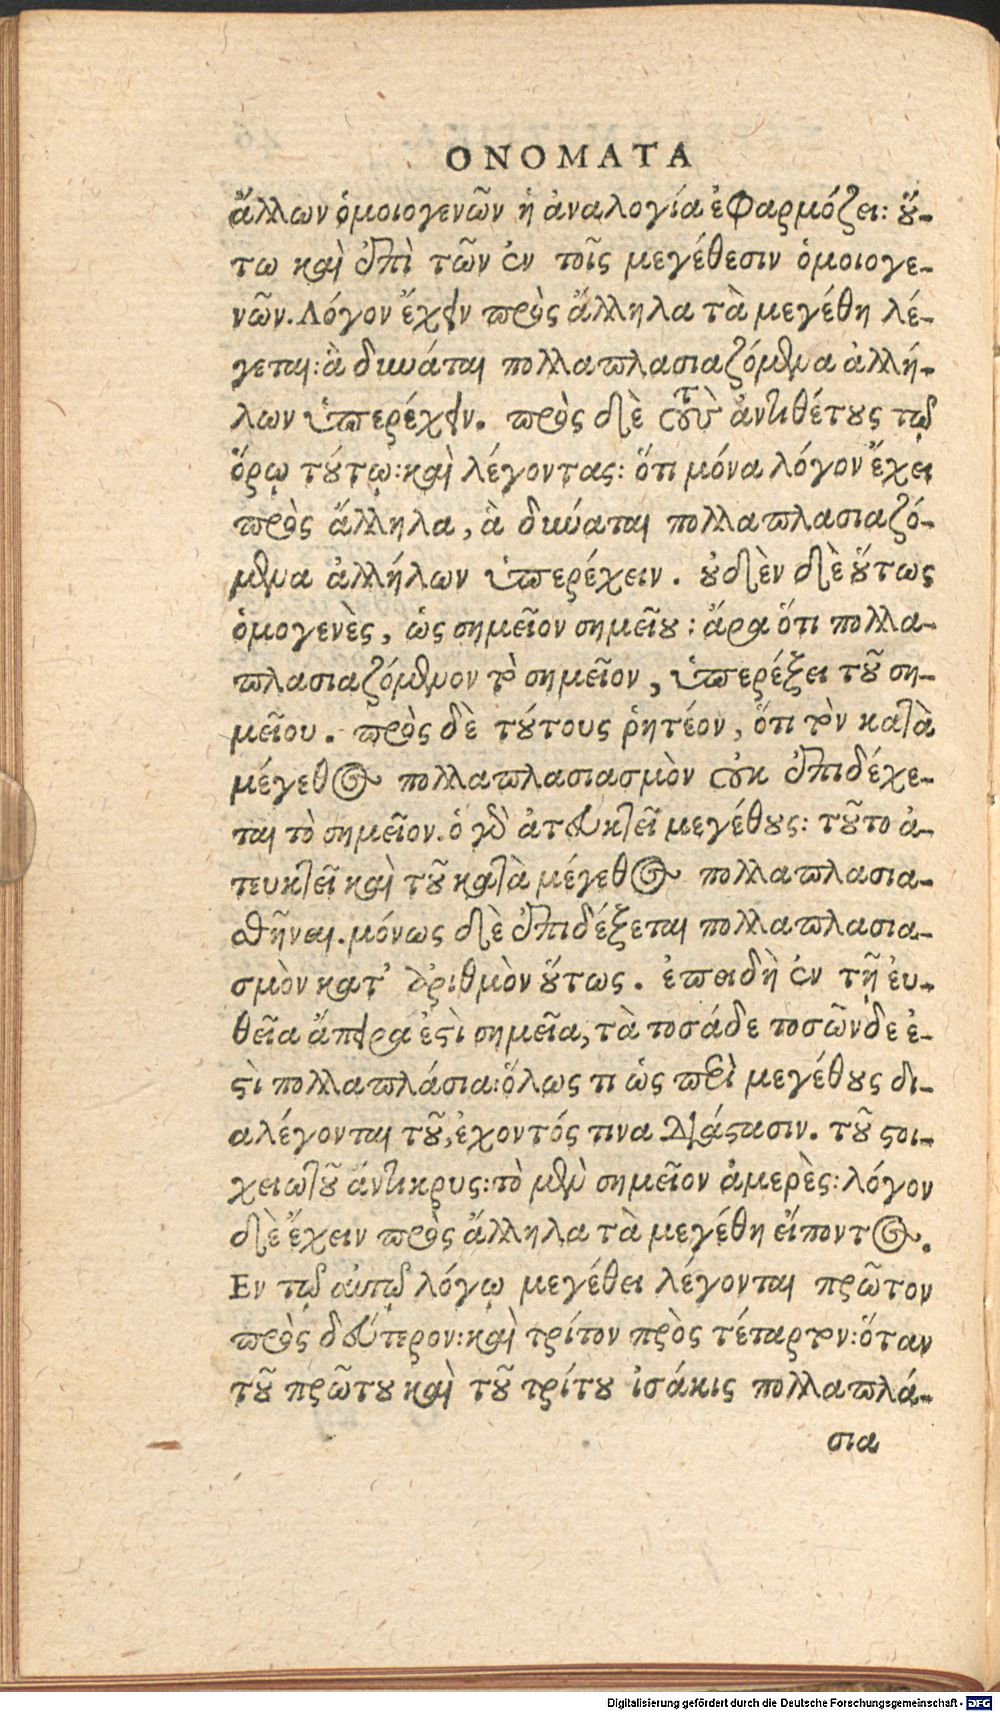 ΟΝΟΜΑΤΑ
ἄλλων ὁμοιογενῶν ἡ ἀναλογία ἐφαρμόζει: ὕ-
τω καὶ ἐπὶ τῶν ἐν τοῖς μεγέθεσιν ὁμοιογε-
νῶν. Λόγον ἔχειν πρὸς ἄλληλα τὰ μεγέθη λέ-
γεται: ἃ δύναται πολλαπλασιαζόμενα ἀλλή-
λων ὑπερέχειν. πρὸς δὲ τοὺς ἀντιθέτους τῷ
ὅρῳ τούτῳ: καὶ λέγοντας: ὅτι μόνα λόγον ἔχει
πρὸς ἄλληλα, ἃ δύναται πολλαπλασιαζό-
μενα ἀλλήλων ὑπερέχειν. οὐδὲν δὲ οὕτως
ὁμογενὲς, ὡς σημεῖον σημείου: ἄρα ὅτι πολλα-
πλασιαζόμενον τὸ σημεῖον, ὑπερέξει τοῦ ση-
μείου. πρὸς δὲ τούτους ῥητέον, ὅτι τὸν κατὰ
μέγεθος πολλαπλασιασμὸν οὐκ ἐπιδέχε-
ται τὸ σημεῖον. ὁ γὰρ ἀτευκτεῖ μεγέθους: τοῦτο ἀ-
τευκτεῖ καὶ τοῦ κατὰ μέγεθος πολλαπλασια-
σθῆναι. μόνως δὲ ἐπιδέξεται πολλαπλασια-
σμὸν κατ' ἀριθμὸν οὕτως. ἐπειδὴ ἐν τῇ εὐ-
θεῖα ἄπειρα ἐστὶ σημεῖα, τὰ τοσάδε τοσῶνδε ἐ-
στὶ πολλαπλάσια: ὅλως τι ὡς περὶ μεγέθους δι-
αλέγονται τοῦ, ἔχοντός τινα διάστασιν. τοῦ στοι-
χειωτοῦ ἄντικρυς: τὸ μὲν σημεῖον ἀμερὲς: λόγον
δὲ ἔχειν πρὸς ἄλληλα τὰ μεγέθη εἴποντος.
Εν τῷ αὐτῷ λόγῳ μεγέθει λέγονται πρῶτον
πρὸς δεύτερον: καὶ τρίτον πρὸς τέταρτον: ὅταν
τοῦ πρώτου καὶ τοῦ τρίτου ἰσάκις πολλαπλά-
σια
Digitalisierung gefördert durch die Deutsche Forschungsgemeinschaft - DFG